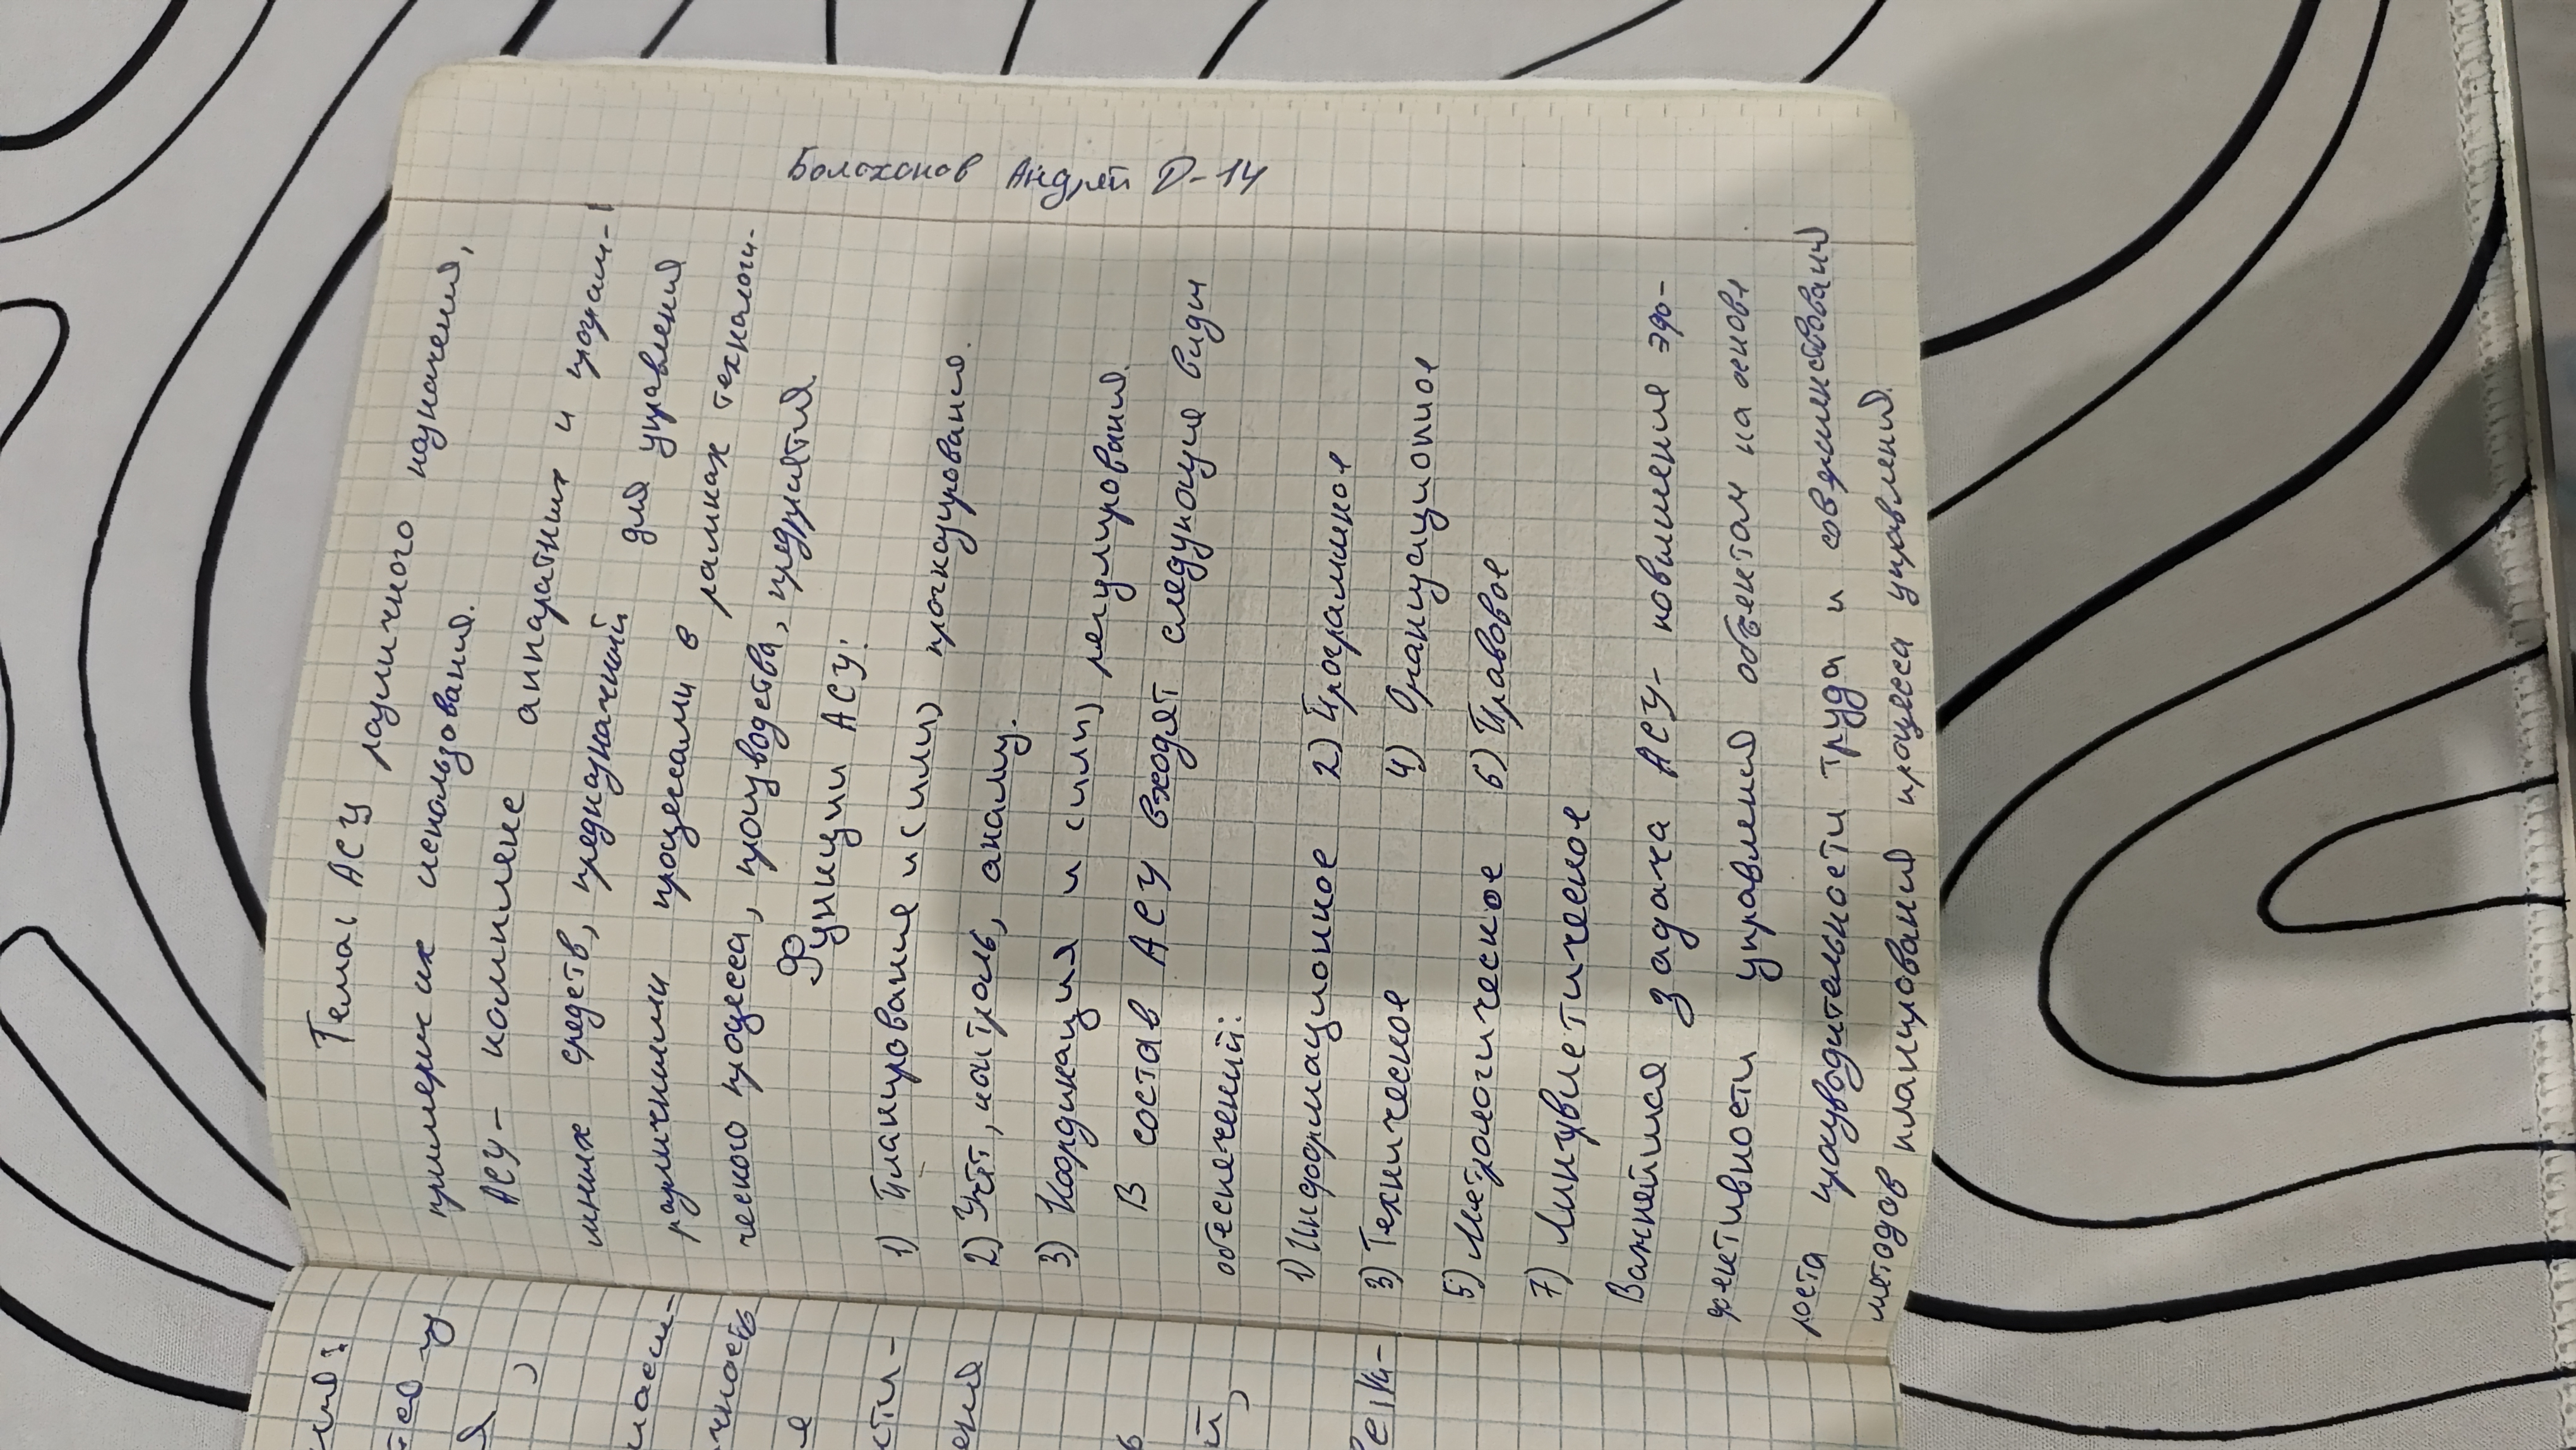 Болоханов Андрей D-14
Тема: АСУ различного назначения,
примеры их использования.
АСУ- комплекс аппаратных и програм-
мных средств, предназначений для управления
различными процессами в рамках технологи-
ческого процесса, производства, предприятия.
Функции АСУ:
1) Планирование и (или) прогнозирование.
2) Учёт, контроль, анализ.
3) Координация и (или) регулирование.
В состав АСУ входят следующие виды
обеспечений:
1) Информационное 2) Программное
3) Техническое 4) Организационное
5) Метрологическое 6) Правовое
7) Лингвистическое
Важнейшая задача АСУ- повышение эфф-
фективности управления объектом на основе
роста производительности труда и совершенствования
методов планирования процесса управления.